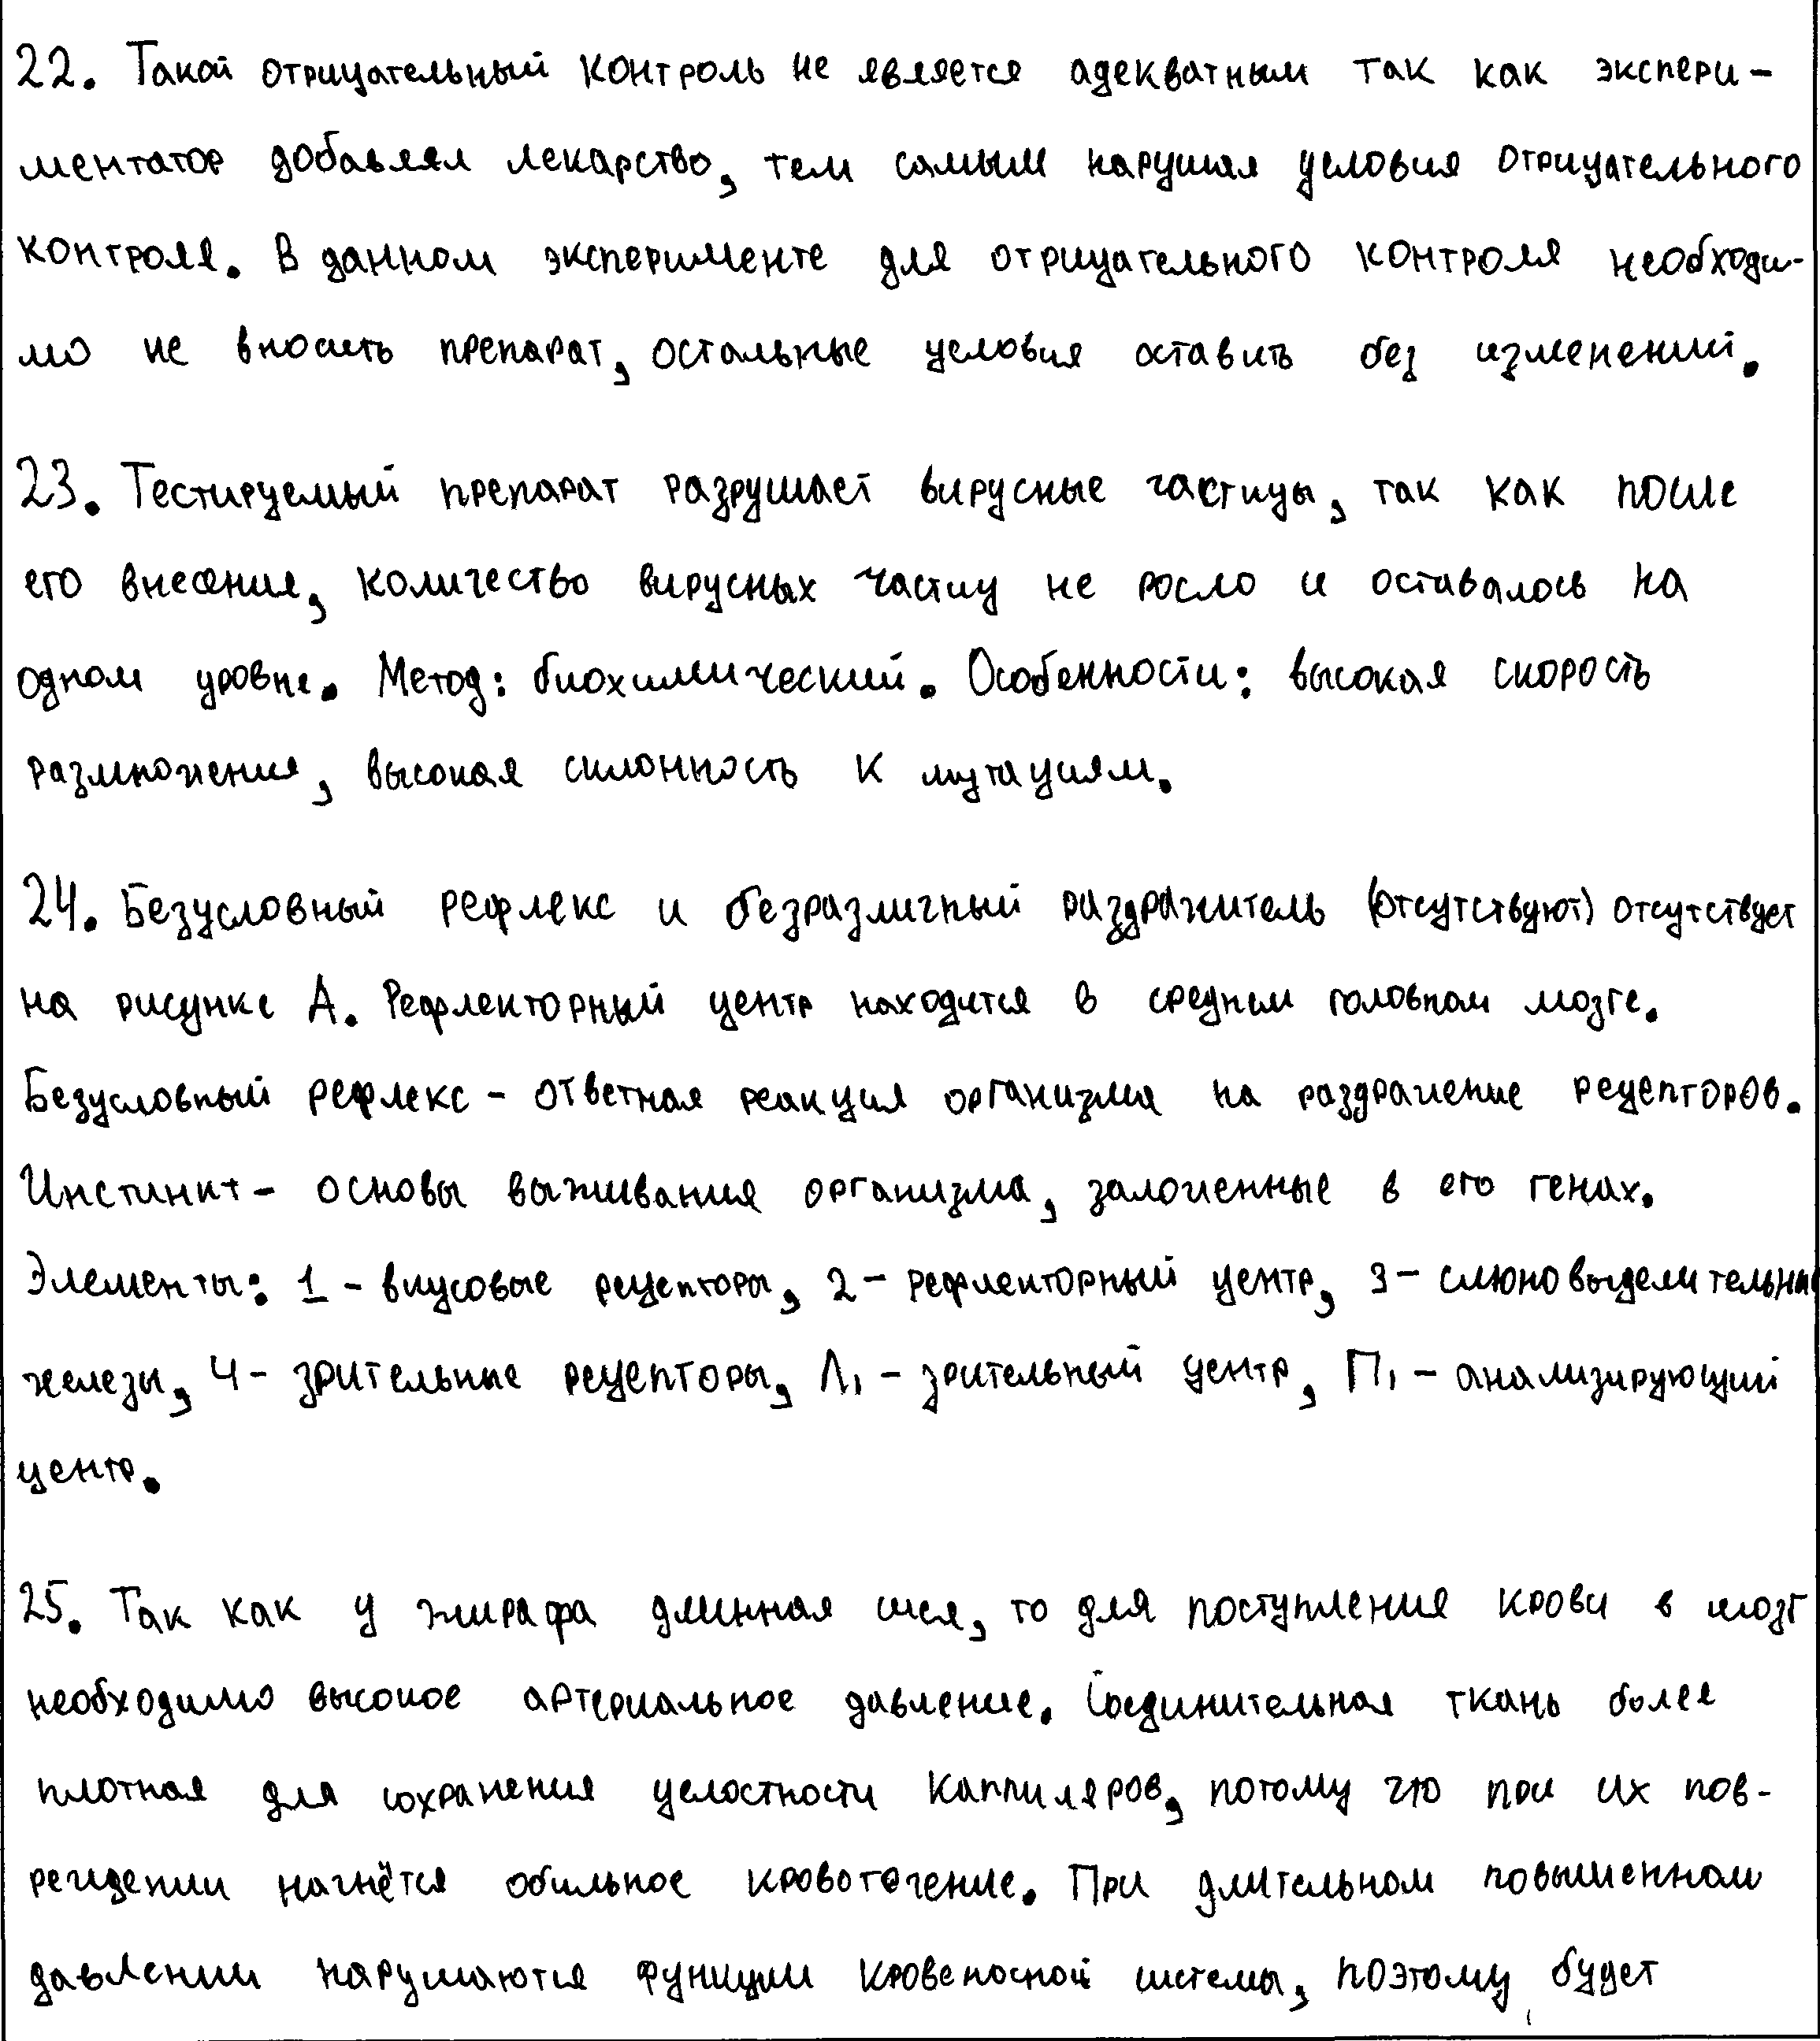 22. Такой отрицательный контроль не является адекватным так как экспери-
ментатор добавлял лекарство, тем самым нарушая условия отрицательного
контроля. В данном эксперименте для отрицательного контроля необходи-
мо не вносить препарат, остальные условия оставить без изменений.
23. Тестируемый препарат разрушает вирусные частицы, так как после
его внесения, количество вирусных частиц не росло и оставалось на
одном уровне. Метод: биохимический. Особенности: высокая скорость
размножения, высокая склонность к мутациям.
24. Безусловный рефлекс и безразличный раздражитель (отсутствуют) отсутствует
на рисунке А. Рефлекторный центр находится в среднем головном мозге.
Безусловный рефлекс - ответная реакция организма на раздражение рецепторов.
Инстинкт - основы выживания организма, заложенные в его генах.
Элементы: 1 - вкусовые рецепторы, 2 - рефлекторный центр, 3 - слюновыделительные
железы, 4 - зрительные рецепторы, Л₁ - зрительный центр, П₁ - анализирующий
центр.
25. Так как у жирафа длинная шея, то для поступления крови в мозг
необходимо высокое артериальное давление. Соединительная ткань более
плотная для сохранения целостности каппиляров, потому что при их пов-
реждении начнётся обильное кровотечение. При длительном повышенном
давлении нарушаются функции кровеносной системы, поэтому будет